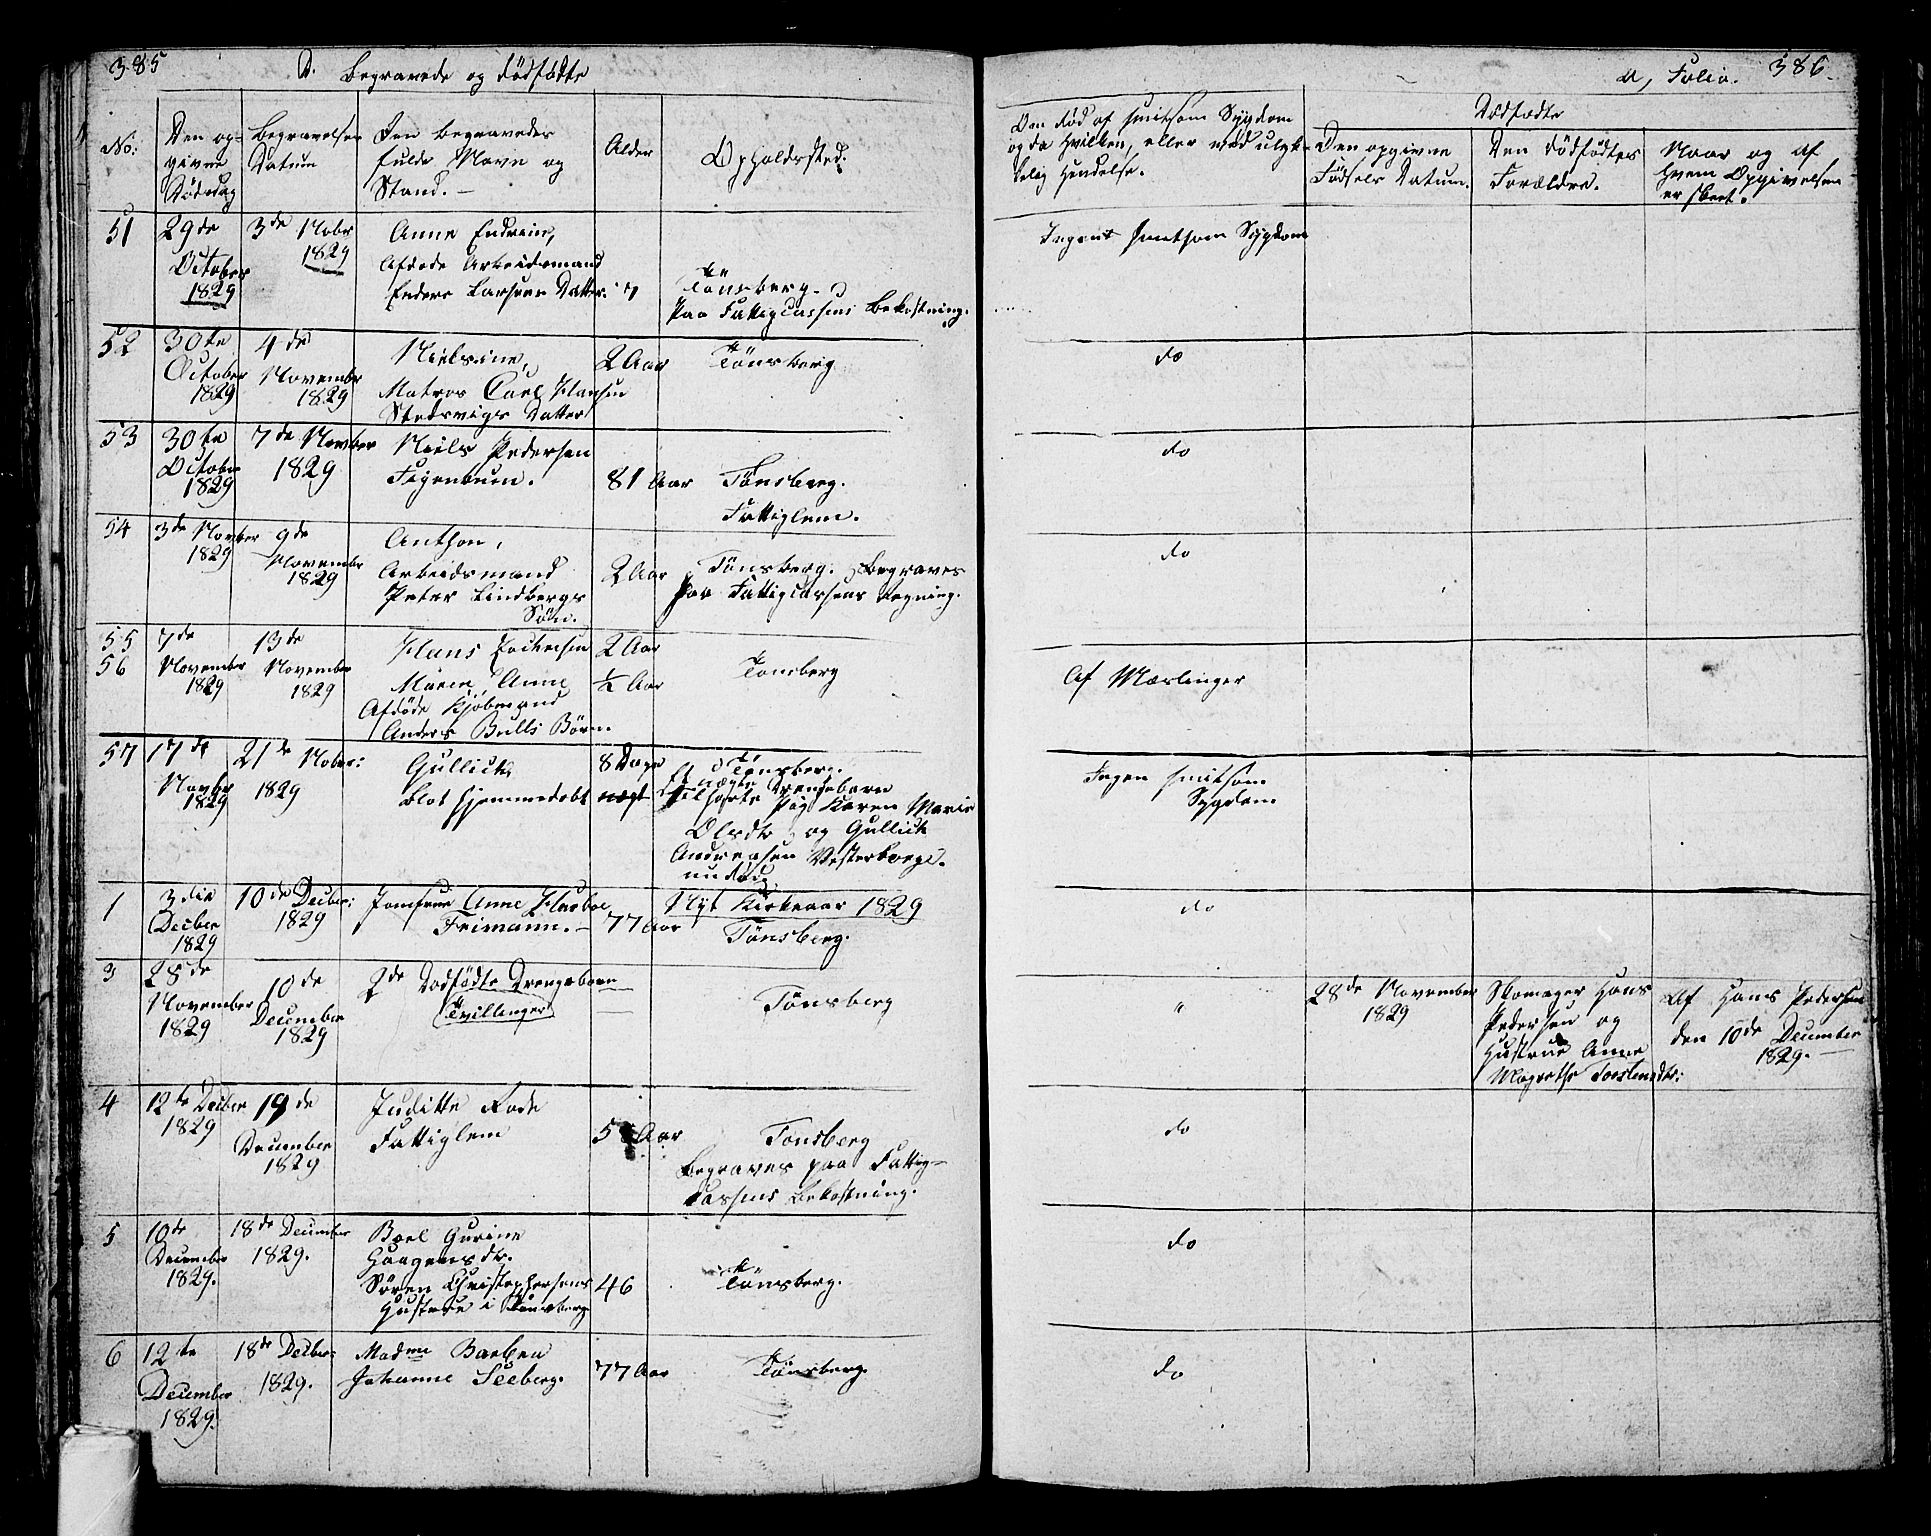 385
D. Begravede og dödfødte
No:
Den op-
givne
Dødsdag
Begravelses
Datum
Den begravedes
fulde Navn og
Stand. –
Alder
Opholdssted.
51
29de
October
1829
3de Nobr
1829
Anne
Afdøde Arbeidsmand
Enders Larsens Datter.
7
Tönsberg.
Paa Fattigcassens Bekostning.
52
30te
October
1829
4de
November
1829
Nielsine,
Matros Carl Hansen
Datter
2 Aar
Tönsberg
53
30te
October
1829
7de Novber
1829
Niels Pedersen
81 Aar
Tönsberg.
Fattiglem.
54
3de Novber
1829
9de
November
1829
Anthon,
Arbeidsmand
Peter Lindbergs
Søn.
2 Aar
Tönsberg. Begraves
paa Fattigcassens Regning.
55
56
7de
November
1829
13de
November
1829
Hans
Maren Anne
Afdøde Kjøbmand
Anders Bulls Børn.
2 Aar
½ Aar
Tönsberg
57
17de
Novbr
1829
21de Nober:
1829
Gullick
blot hjemmedøbt
8 Dage
Tönsberg.
Et uægte Drengebarn
Pige Karen Marie
Olsdr og Gullick
Andreasen Vesterborge.
1
3die
Decber
1829
10de Decber:
1829
Jomfrue Anne
Frimann. –
77 Aar
Nyt Kirkeaar 1829
Tönsberg.
3
28de
November
1829
10de
December
1829
2de Dödfödte Drengebörn
Tvillinger
Tönsberg
4
12te Decber
1829
19de
December
1829
Juditte Rode
Fattiglem
Aar
Tönsberg
Begraves paa Fattig-
cassens Bekostning.
5
10de
December
1829.
18de December
1829.
Boel Gurine
Haagensdr.
Sören Christophersens
Hustrue i Tönsberg
46
Tönsberg.
6
12te
December
1829.
18de Decber:
1829.
Madme Barbra
Johanne Seeberg.
77 Aar
Tönsberg.
D, Folio. 386.
Om død af smitsom Sygdom
og da hvilken, eller ved ulyk-
kelig Hendelse.
Dødfødte
Den opgivne
Fødsels Datum.
Den dødfødtes
Forældre.
Naar og af
hvem Opgivelsen
er skeet.
Ingen smitsom Sygdom
do
do
do
Af Mæslinger
Ingen smitsom
Sygdom
do
"
28de November
1829
Skomager Hans
Pedersen og
Hustrue Anne
Magrethe Torstensdr:
Af Hans Pedersen
den 10de December
1829. –
do
do
do